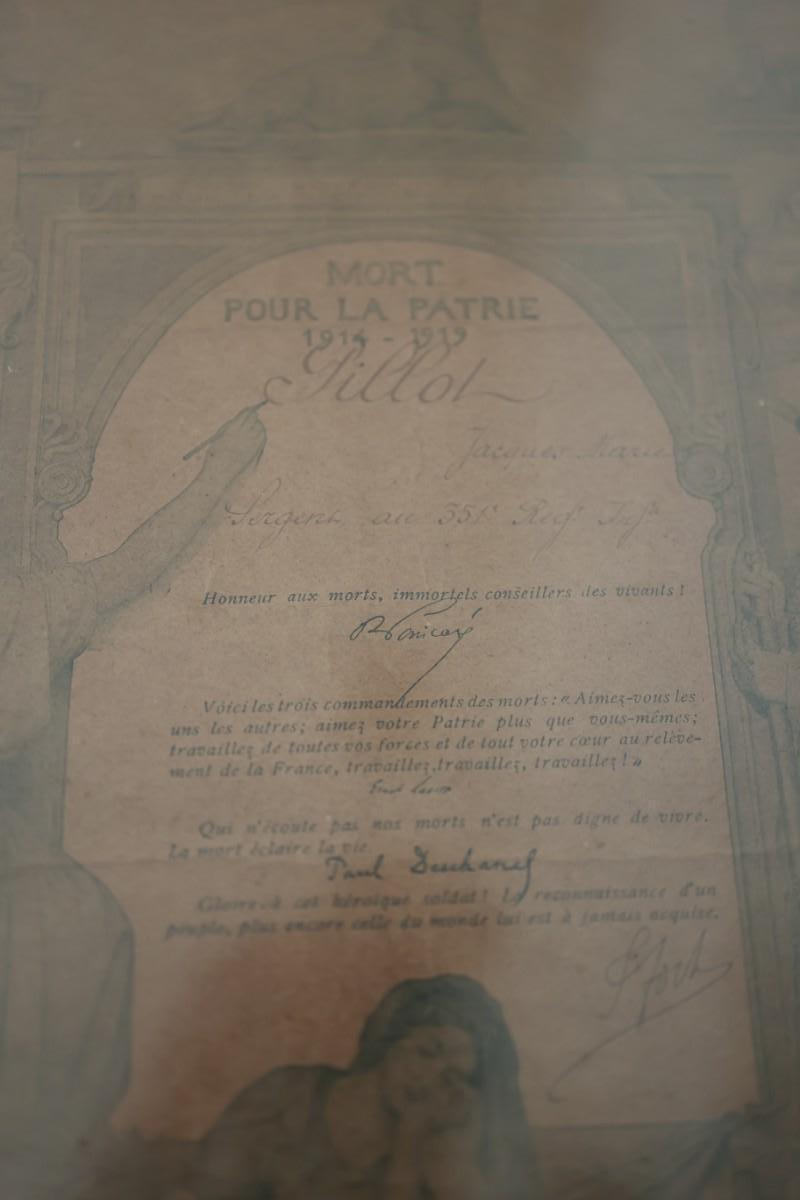 MORT
POUR LA PATRIE
1914 - 1919
Jacques Marie
Sergent au 351e Regt Inf
Honneur aux morts, immortels conseillers des vivants !
R Poincaré
Voici les trois commandements des morts : « Aimez-vous les
uns les autres ; aimez votre Patrie plus que vous-mêmes ;
travaillez de toutes vos forces et de tout votre cœur au relève-
ment de la France, travaillez, travaillez, travaillez ! »
Qui n'écoute pas nos morts n'est pas digne de vivre.
La mort éclaire la vie.
Paul Deschanel
Gloire à cet héroïque soldat ! La reconnaissance d'un
peuple, plus encore celle du monde lui est à jamais acquise.